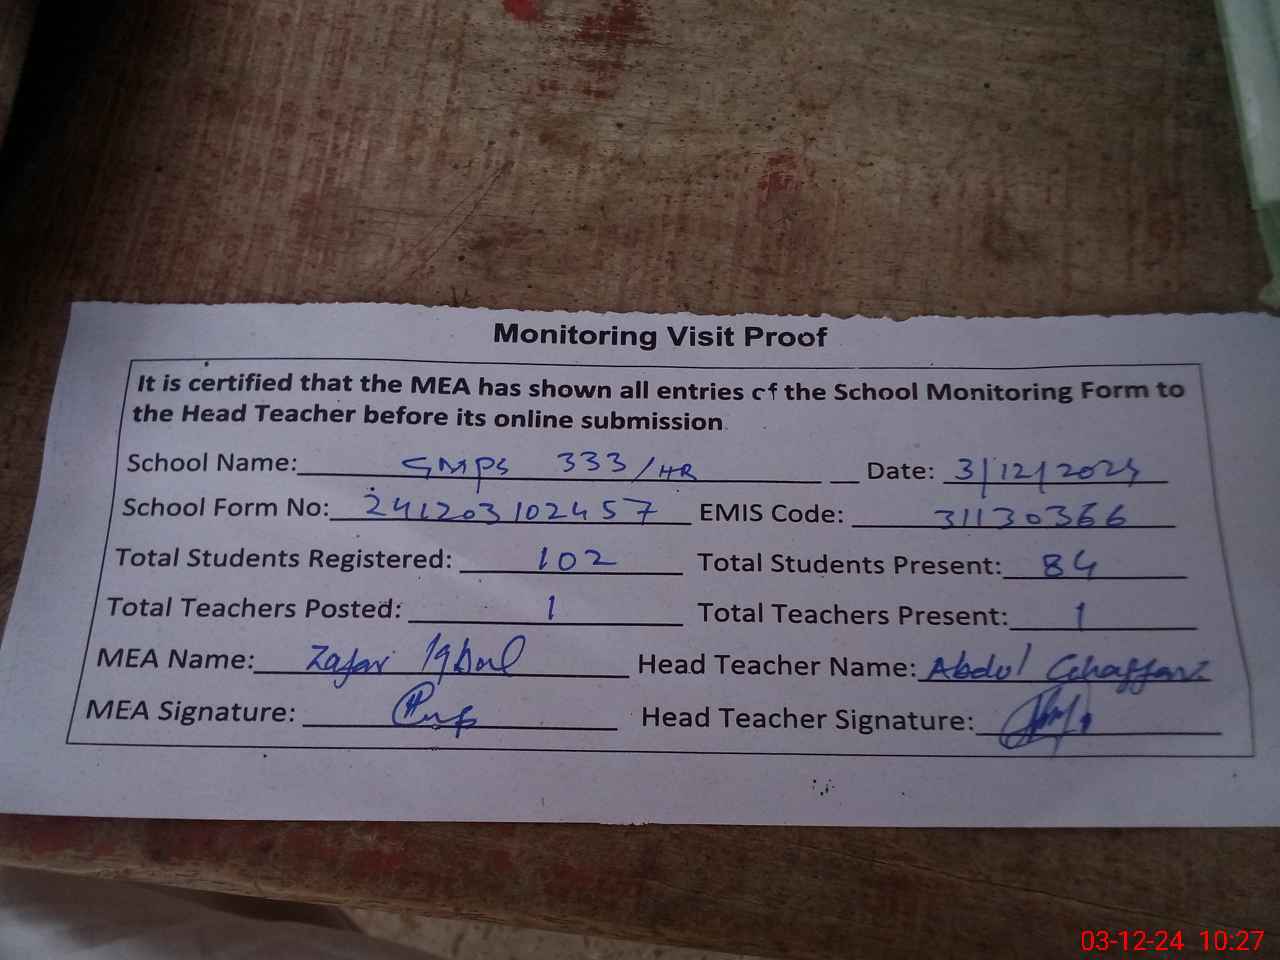 Monitoring Visit Proof
It is certified that the MEA has shown all entries of the School Monitoring Form to
the Head Teacher before its online submission
School Name: GMPS 333/HR Date: 3/12/2024
School Form No: 241203102457 EMIS Code: 31130366
Total Students Registered: 102 Total Students Present: 84
Total Teachers Posted: 1 Total Teachers Present: 1
MEA Name: Zafar Iqbal Head Teacher Name: Abdul Ghaffar
MEA Signature: Head Teacher Signature:
03-12-24 10:27